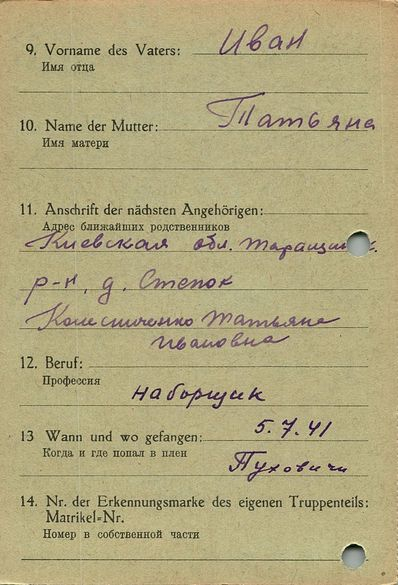 9. Vorname des Vaters: Иван
Имя отца
10. Name der Mutter: Татьяна
Имя матери
11. Anschrift der nächsten Angehörigen:
Адрес ближайших родственников
Киевская обл. Таращанск.
р-н, д. Степок
Колесниченко Татьяне
Ивановна
12. Beruf:
Профессия
наборщик
13 Wann und wo gefangen: 5.7.41
Когда и где попал в плен Пуховичи
14. Nr. der Erkennungsmarke des eigenen Truppenteils:
Matrikel=Nr.
Номер в собственной части